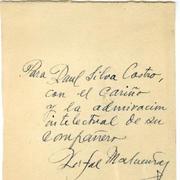 Para Raul Silva Castro,
con el cariño
y la admiracion
intelectual de su
compañero